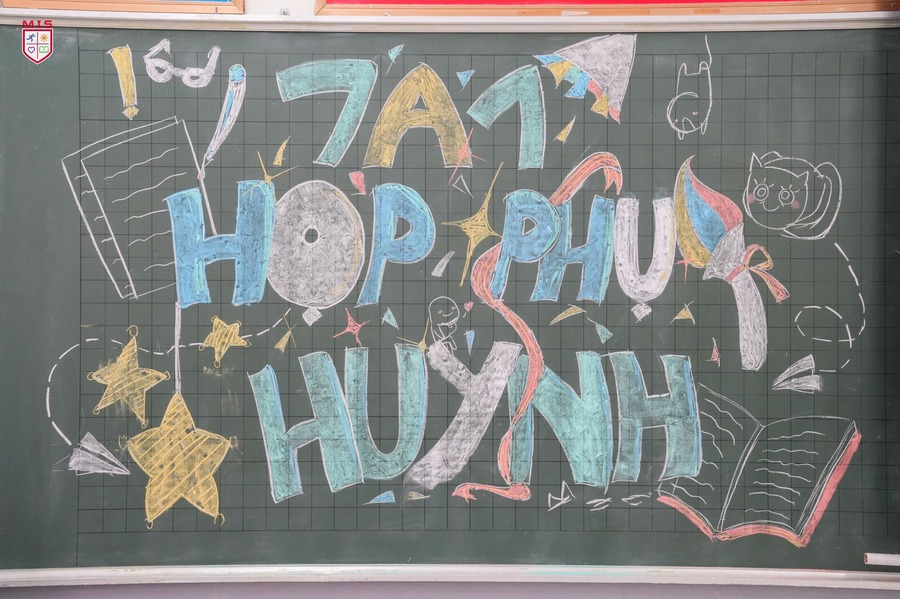 MIS
7A1
HỌP PHỤ
HUYNH